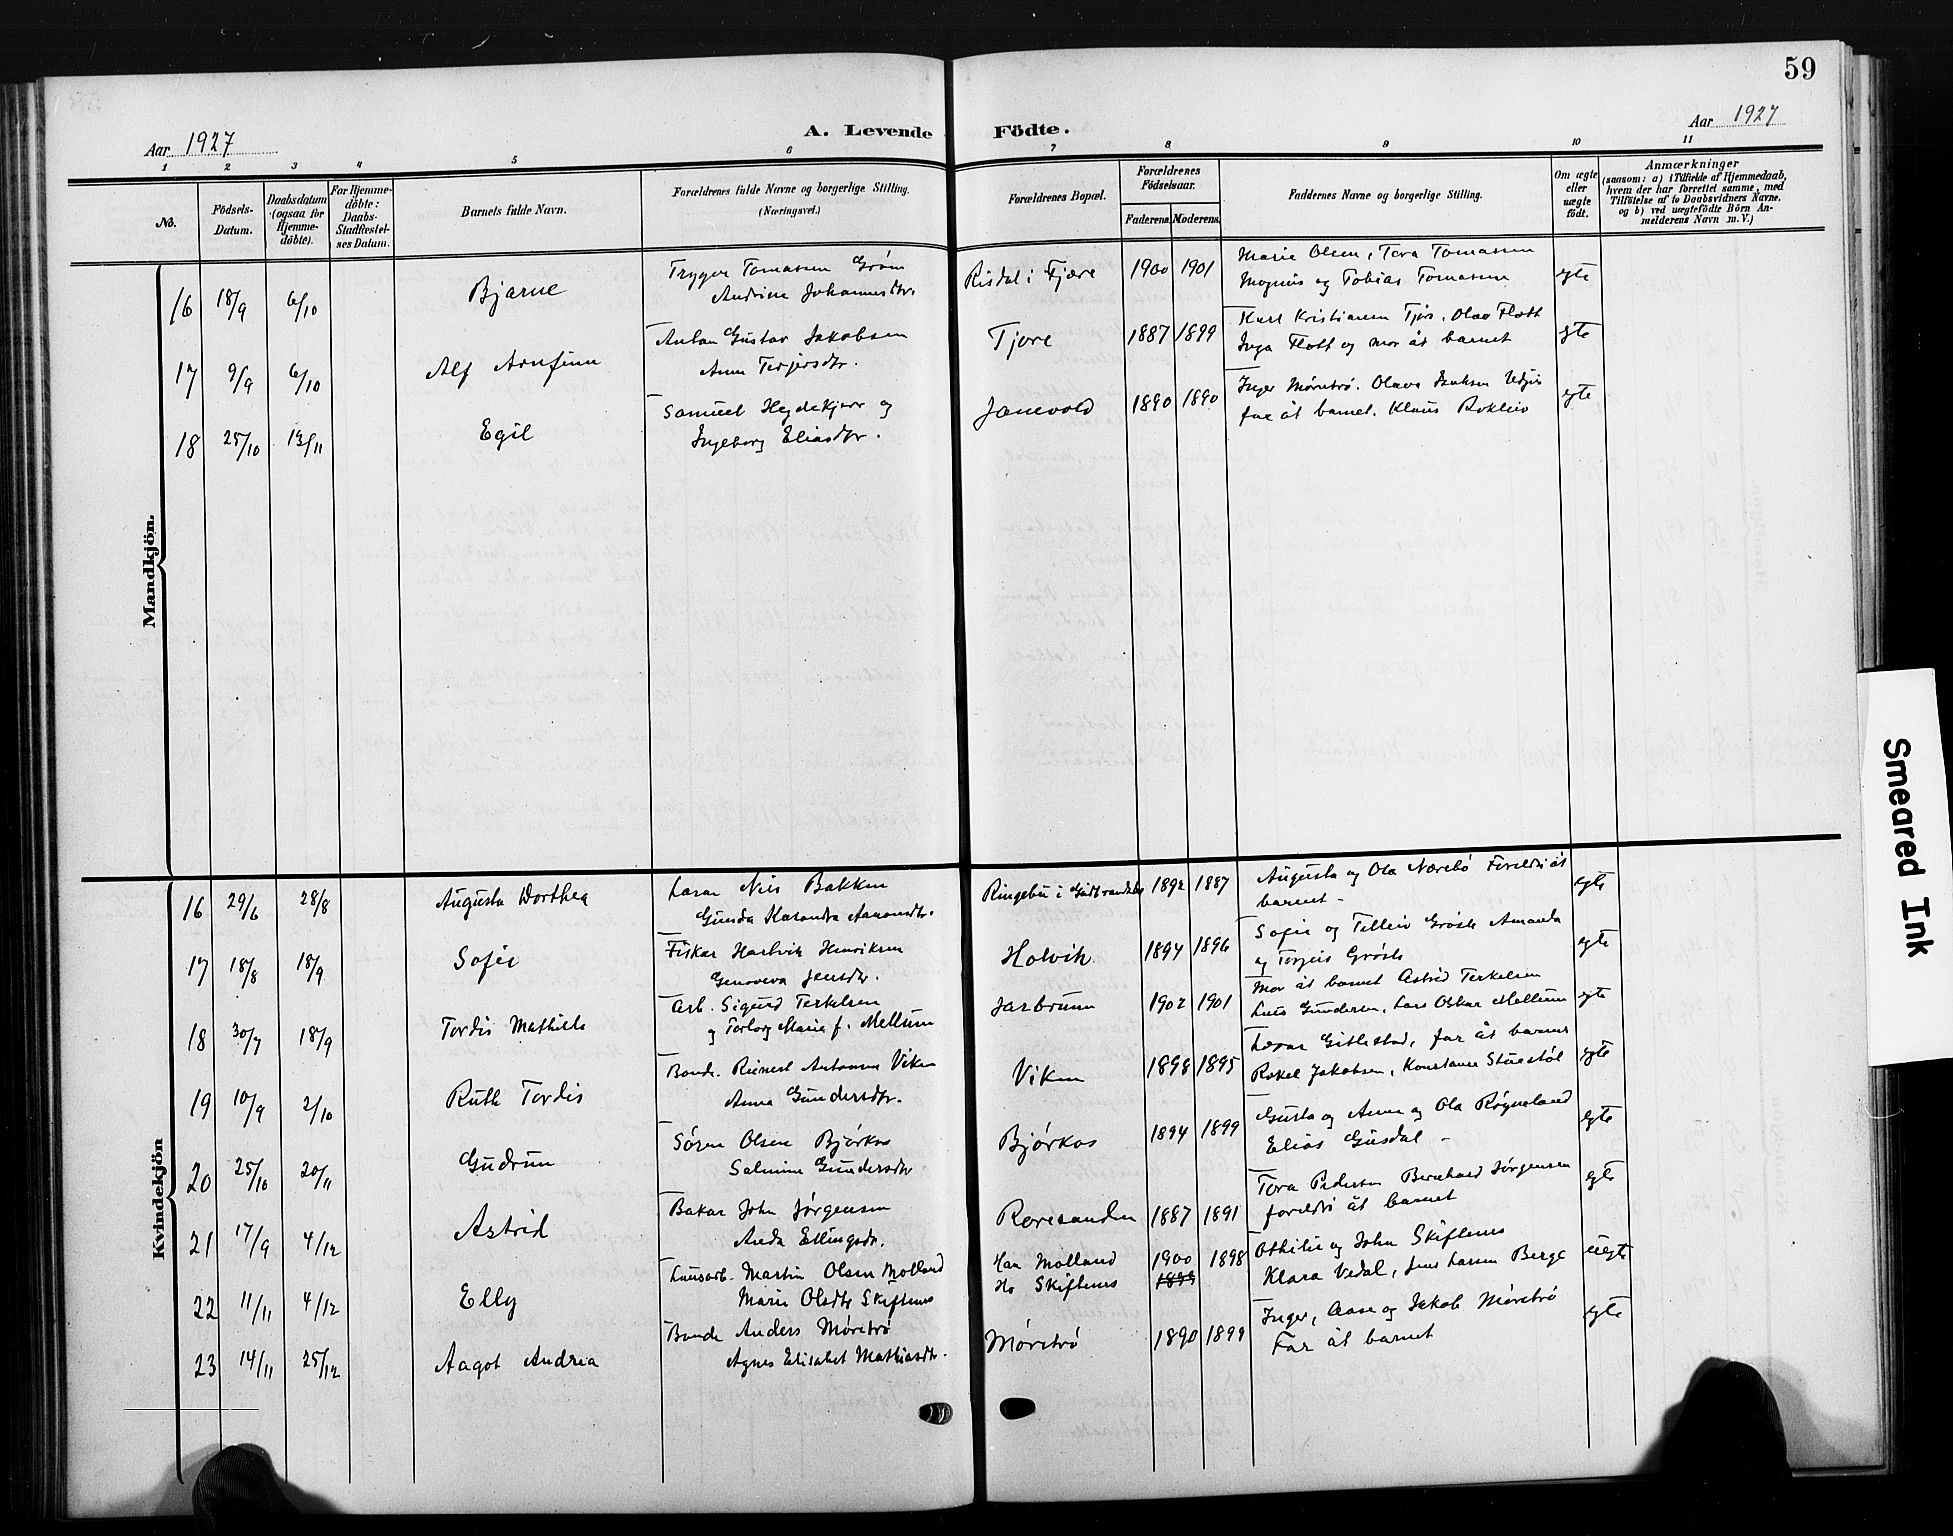 59
Aar 1927
A. Levende Födte.
Aar 1927
1 2 3 4 5 6 7 8 9 10 11
No.
Födsels-Datum.
Daabsdatum (ogsaa for Hjemme-döbte).
For Hjemme-döbte: Daabs-Stadfæstel-ses Datum.
Barnets fulde Navn.
Forældrenes fulde Navne og borgerlige Stilling.
(Næringsvei.)
Forældrenes Bopæl.
Forældrenes Födselsaar.
Faderens. Moderens.
Faddernes Navne og borgerlige Stilling.
Om ægte eller uægte födt.
Anmærkninger
(saasom: a) i Tilfælde af Hjemmedaab,
hvem der har forrettet samme, med
Tilföielse af to Daabsvidners Navne,
og b) ved uægtefödte Börn An-
melderens Navn m. V.)
Mandkjön.
16 18/9 6/10 Bjarne
Trygve Tomassen Grøm
Andrine Johannesdtr.
Risdal i Fjære 1900 1901
Marie Olsen, Tora Tomassen
Magnus og Tobias Tomassen
egte
17 9/9 6/10 Alf Arnfinn
Anton Gustav Jakobsen
Anna Terjersdtr.
Tjore 1887 1899
Karl Kristiansen Tjore. Olav Flott
Inga Flott og mor åt barnet
egte
18 25/10 13/11 Egil
Samuel Heydekjær og
Ingeborg Eliasdtr.
Janevold 1890 1890
Inger Møretrø. Olava Isaksen
far åt barnet. Klaus
egte
Kvindekjön
16 29/6 28/8 Augusta Dorthea
Lærar Nils Bakken
Gunda Kasandra Aanondtr.
Ringebu i Gudbrandsdal 1892 1887
Augusta og Ola Nærebø Foreldri åt
barnet -
egte
17 18/8 18/9 Sofie
Fiskar Hartvik Henriksen
Genoveva Jensdtr.
Holvik 1894 1896
Sofie og Tellev Grøsle Amanda
og Torjus Grøsle
egte
18 30/7 18/9 Tordis Mathilde
Arb. Sigurd Terkelsen
og Torborg Maria f. Mellum
Jarbrunn 1902 1901
Mor åt barnet Astrid Terkelsen
Lars Gundersen, Lars Oskar Mellum
egte
19 10/9 2/10 Ruth Tordis
Bonde. Reinert Antonsen Viken
Anna Gundersdtr.
Viken 1898 1895
Lærar Gitlestad, far åt barnet
Rakel Jakobsen, Konstanse Stuestøl
egte
20 25/10 20/11 Gudrun
Søren Olsen Bjørkos
Salmine Gundersdtr
Bjørkos 1894 1899
Gusta og Anna og Ola Røyneland
Elias Gusdal -
egte
21 17/9 4/12 Astrid
Bakar John Jørgensen
Anda Ellingsdtr.
Roresanden 1887 1891
Tora Pedersen Bernhard Jørgensen
foreldri åt barnet
egte
22 11/11 4/12 Elly
Lausarb. Martin Olsen Molland
Marie Olsdtr Skiftenes
Han Molland 1900 1898
Ho Skiftenes 1899
Othilie og John Skiftenes
Klara Vedal, Jens Larsen Berge
uegte
23 14/11 25/12 Aagot Andrea
Bonde Anders Møretrø
Agnes Elisabet Mathiasdtr.
Møretrø 1890 1899
Inger, Aase og Jakob Møretrø
Far åt barnet
egte
Smeared Ink